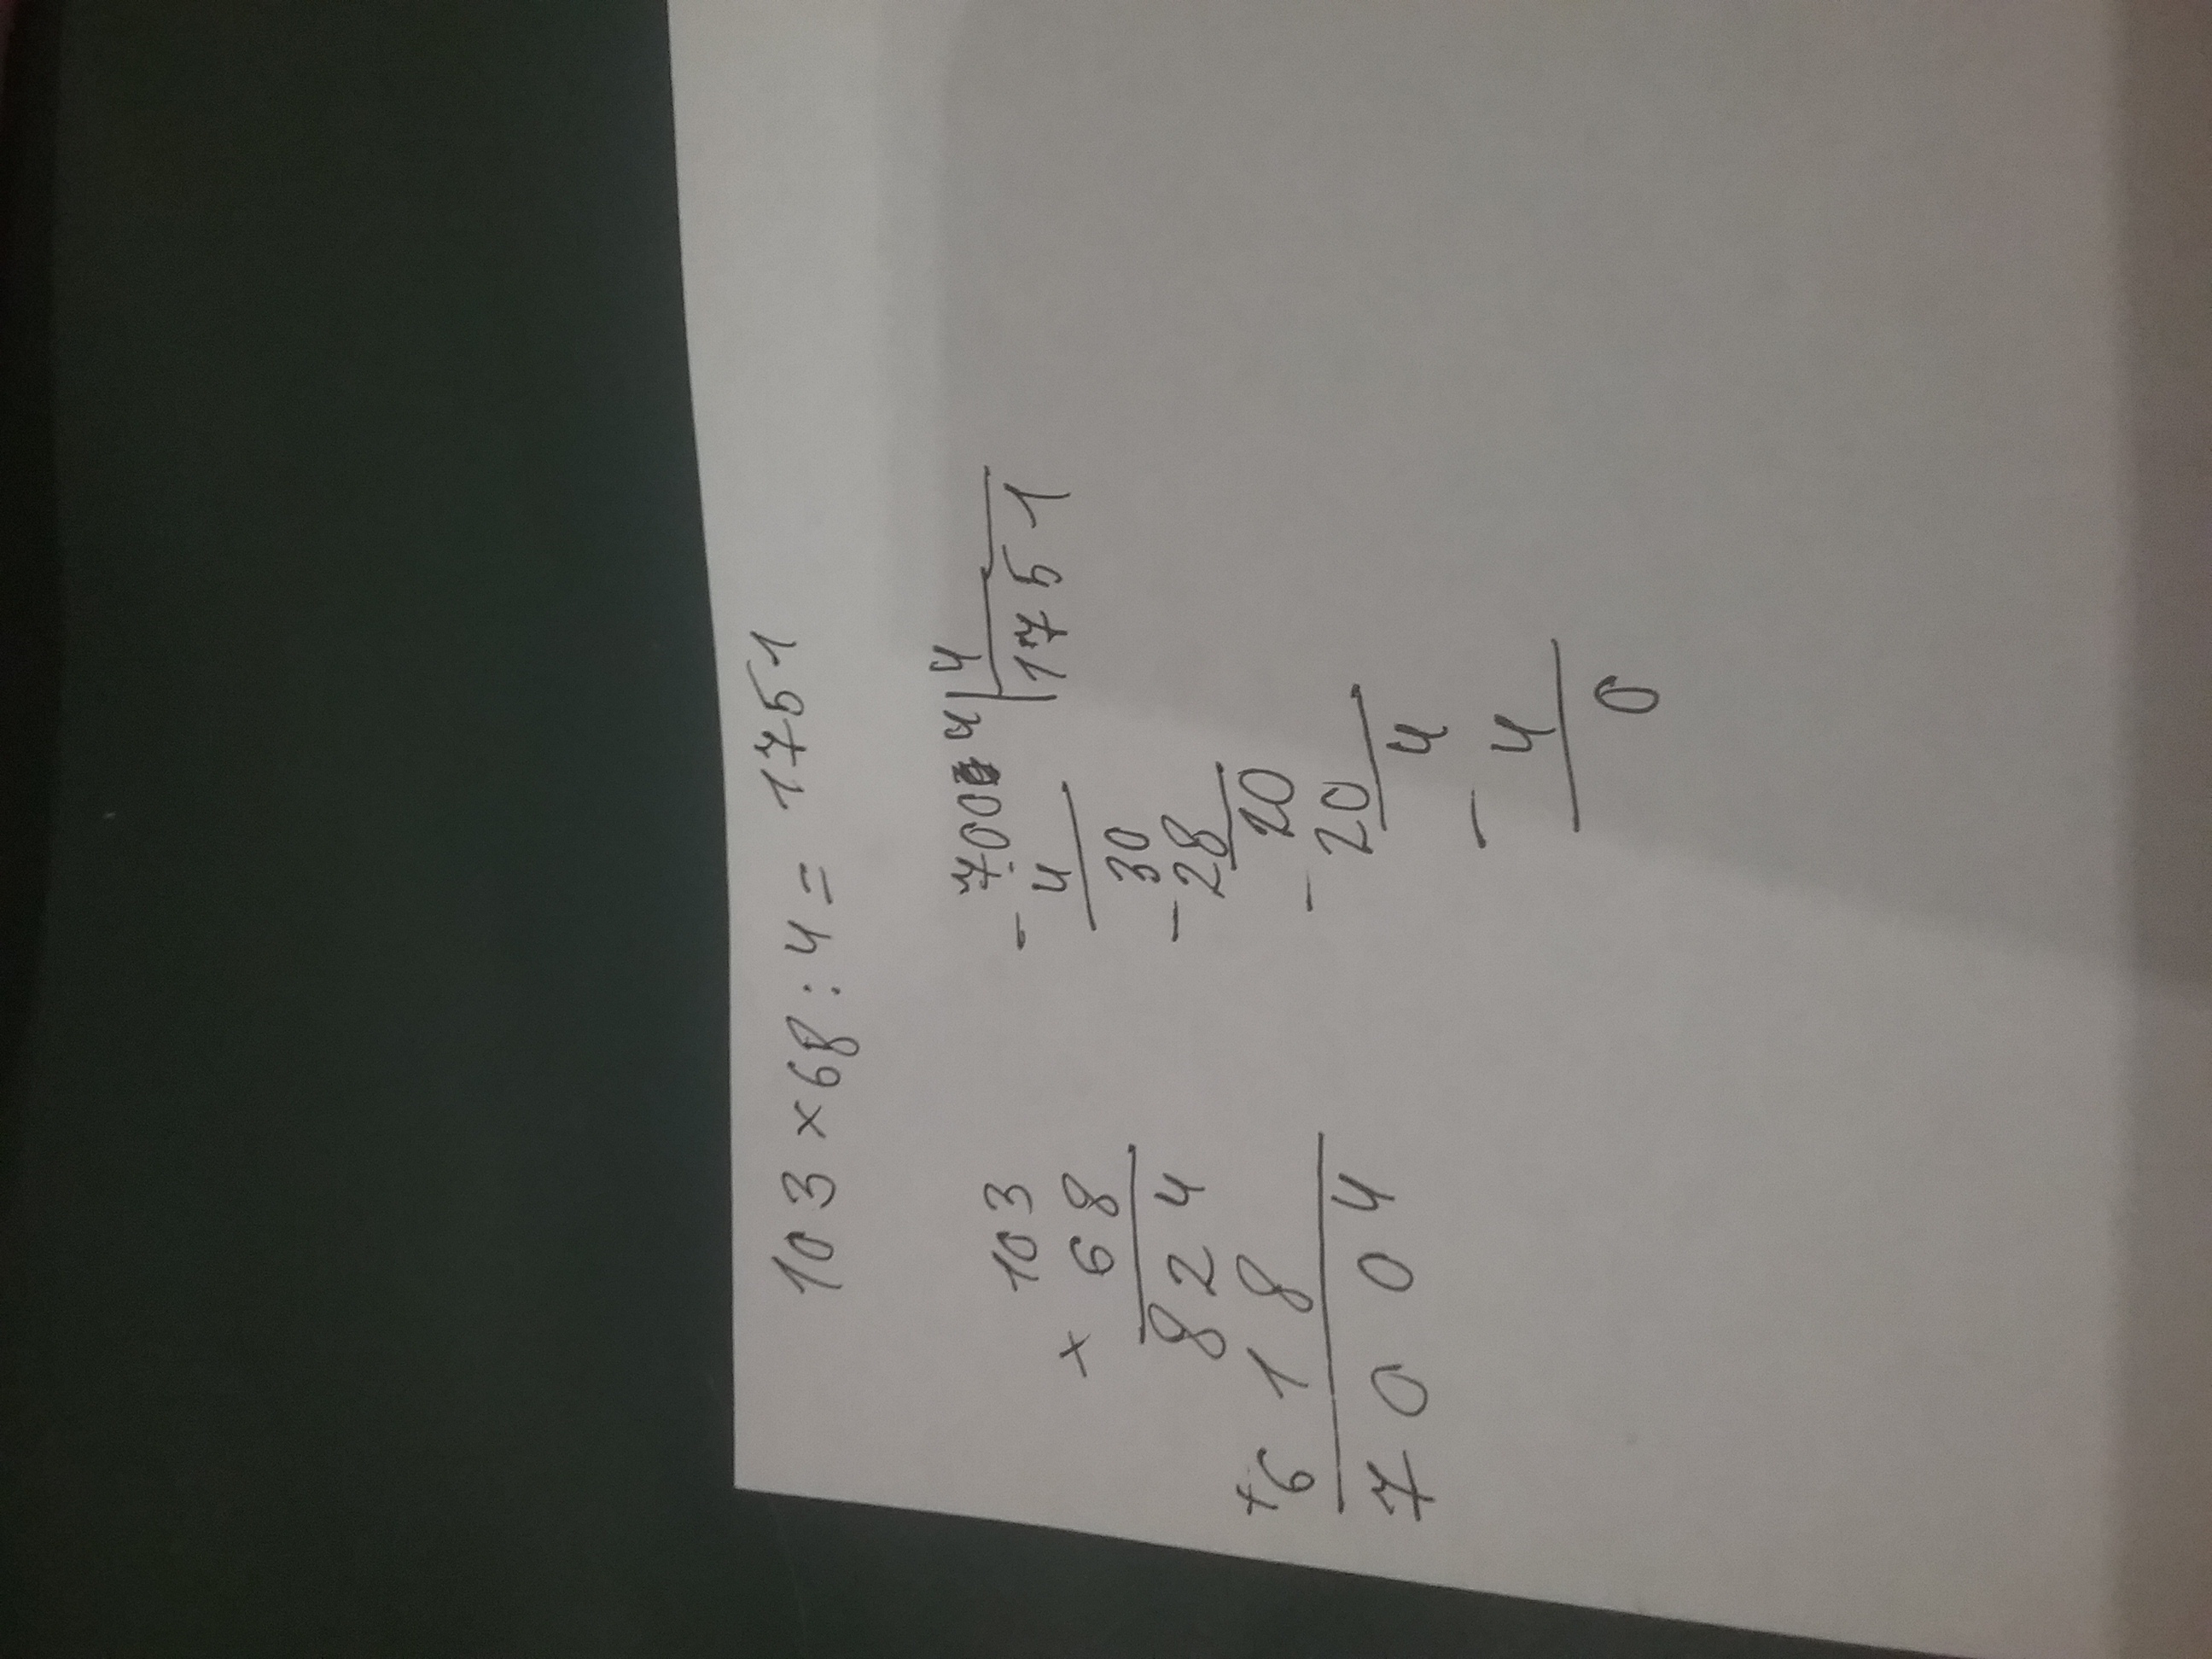 103 × 68 : 4 = 1751
103
× 68
824
+618
7004
7004 4
- 4 1751
30
- 28
20
- 20
4
- 4
0